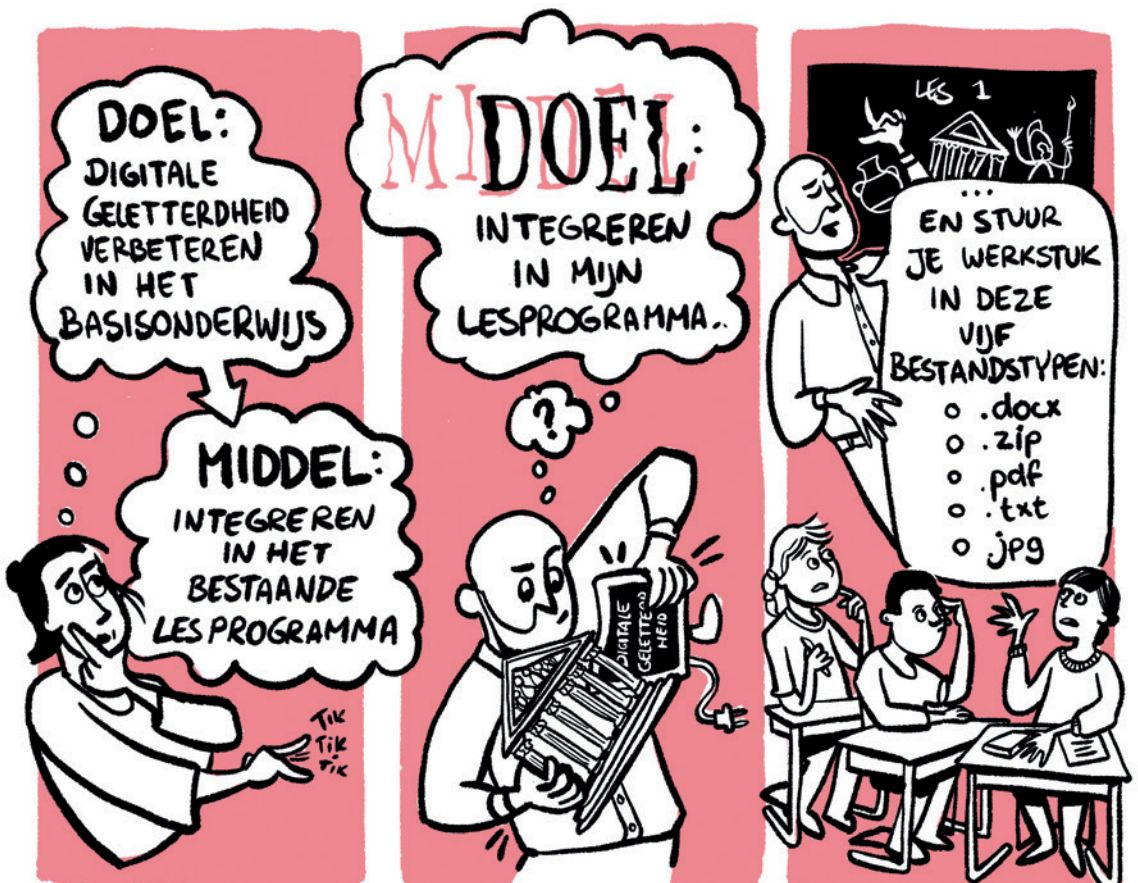 DOEL:
DIGITALE
GELETTERDHEID
VERBETEREN
IN HET
BASISONDERWIJS
MIDDEL:
INTEGREREN
IN HET
BESTAANDE
LESPROGRAMMA
TIK
TIK
TIK
MIDDEL:
DOEL:
INTEGREREN
IN MIJN
LESPROGRAMMA..
?
DIGITALE
GELETTERD
HEID
LES 1
...
EN STUUR
JE WERKSTUK
IN DEZE
VIJF
BESTANDSTYPEN:
o .docx
o .zip
o .pdf
o .txt
o .jpg